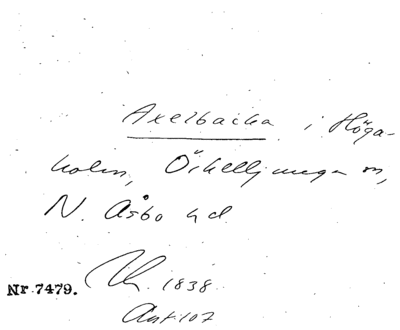 Axelbacka i Höga-
holm, Örkelljunga sn,
N. Åsbo hd
Nr 7479. 1838
Ant. 107